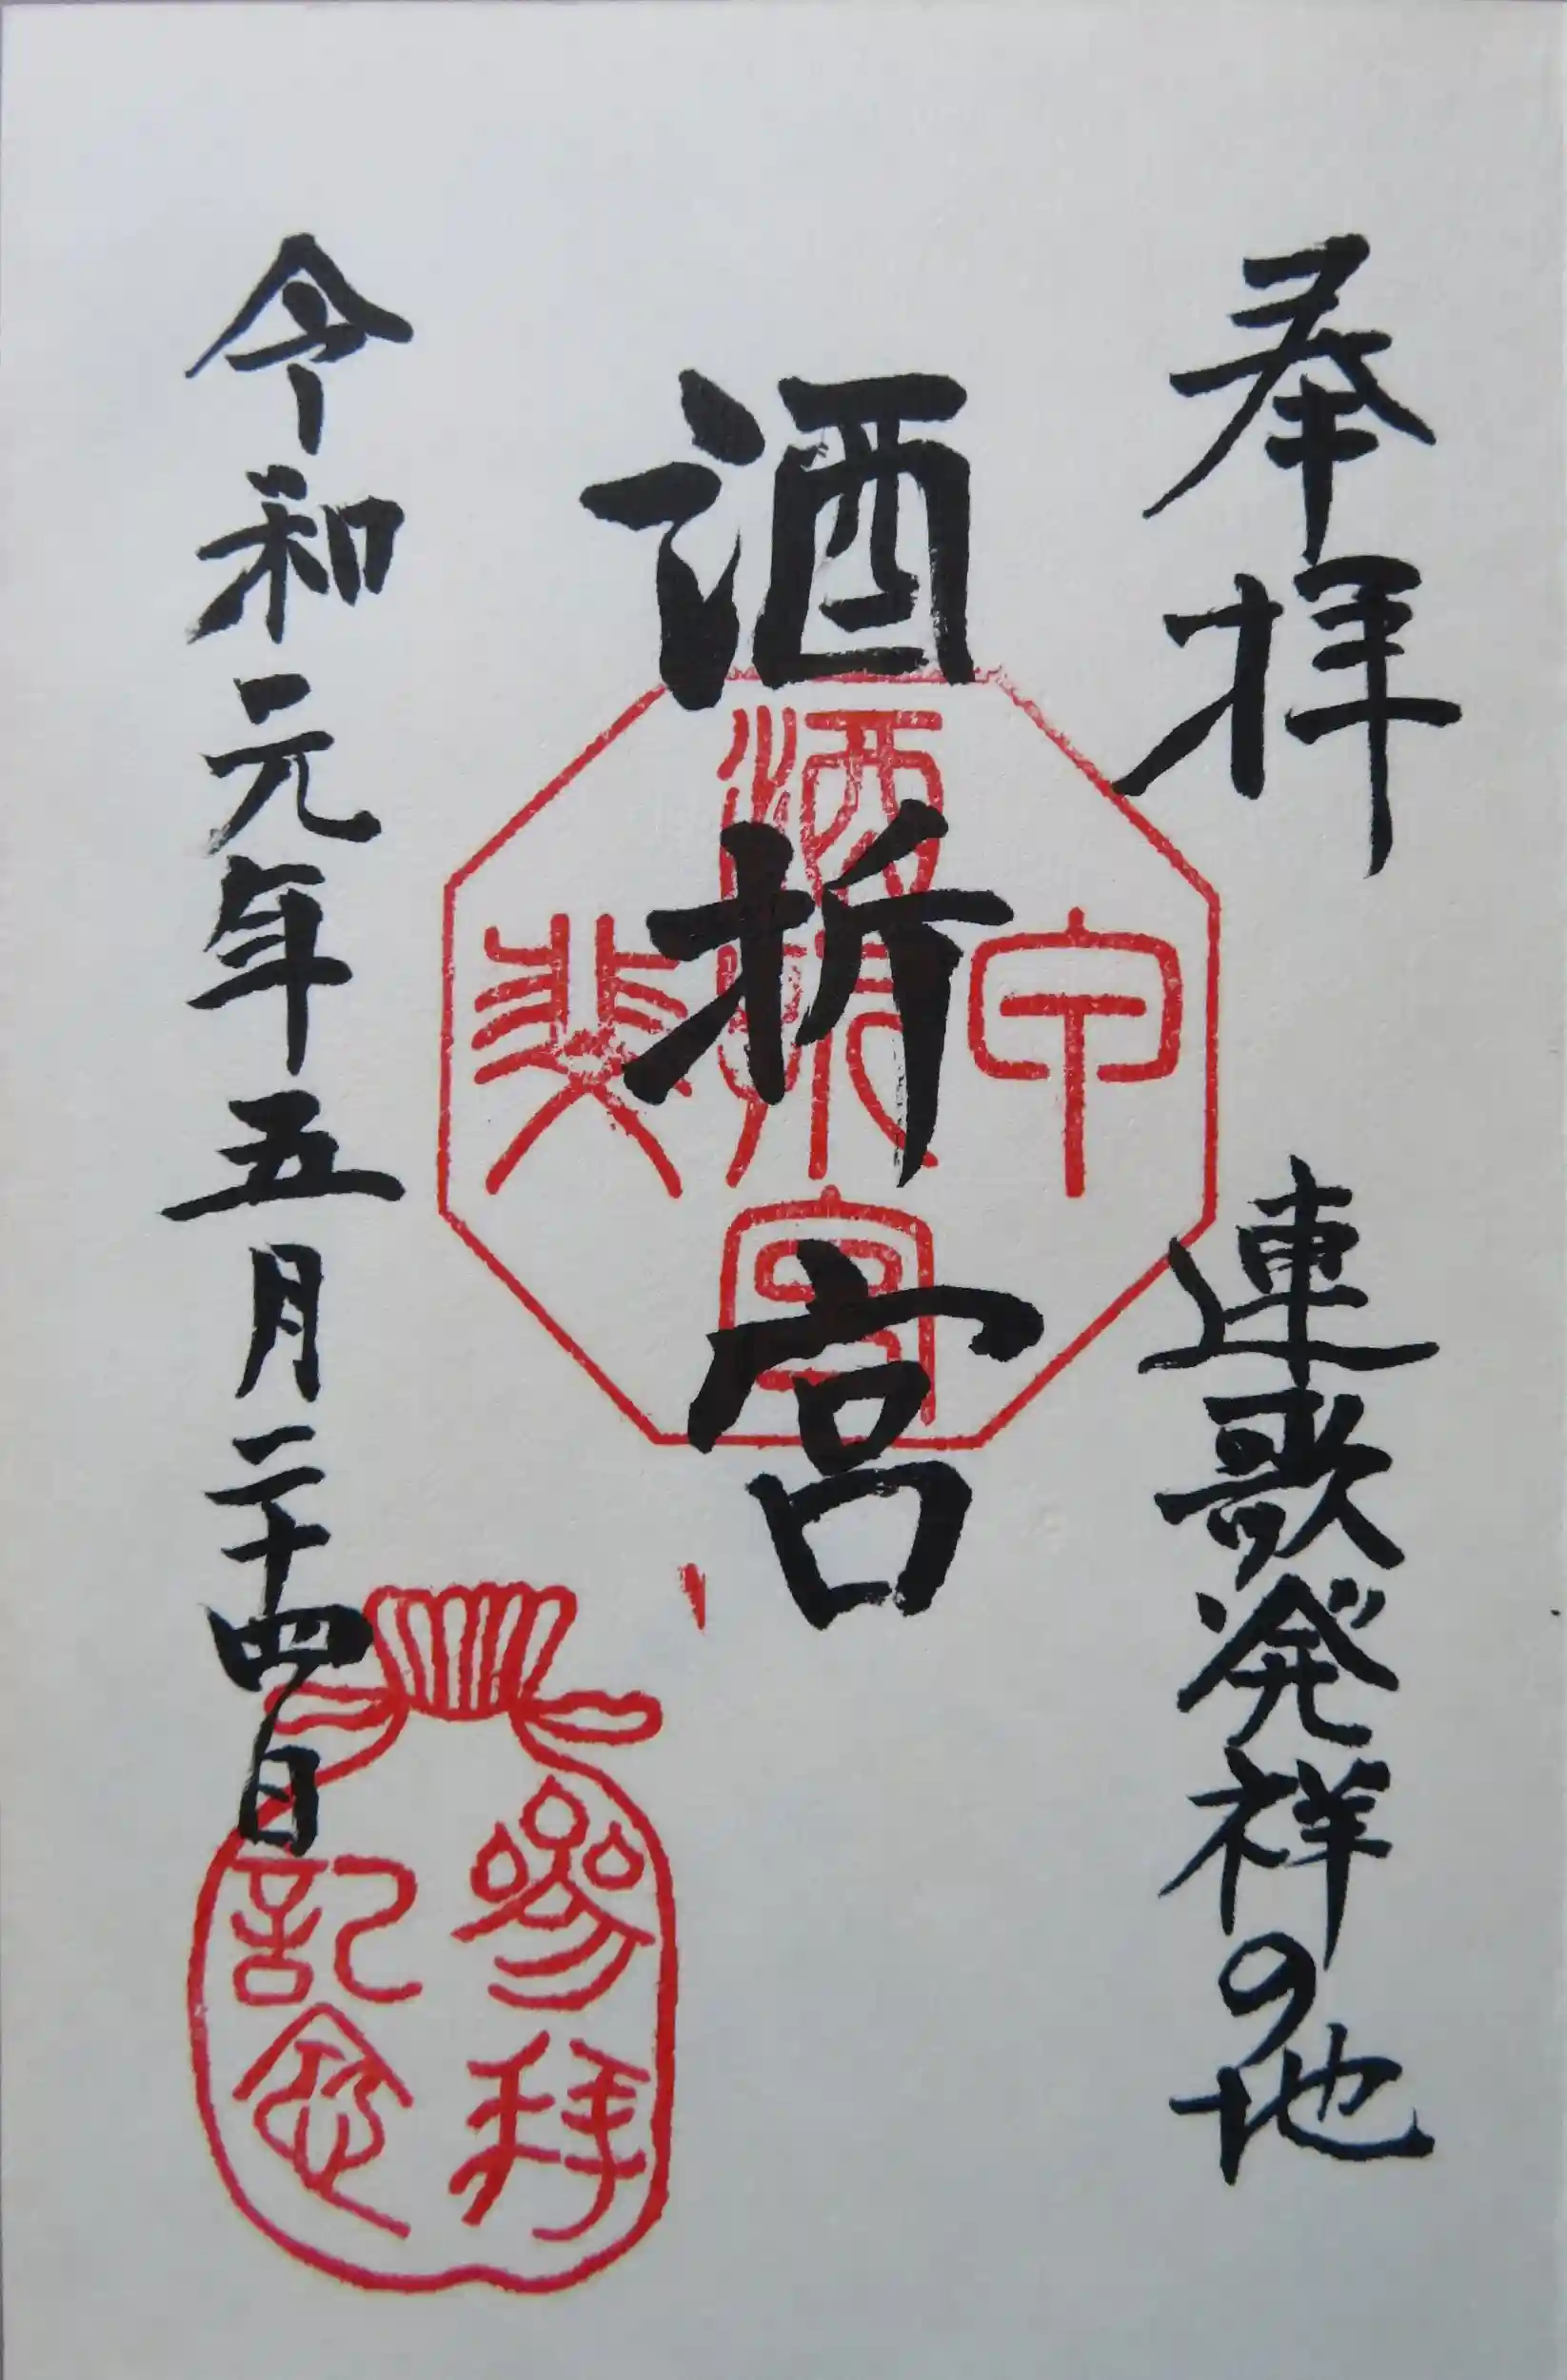 奉拝
連歌発祥の地
酒折宮
甲
酒折
宮
斐
令和元年五月二十四日
参拝
記念